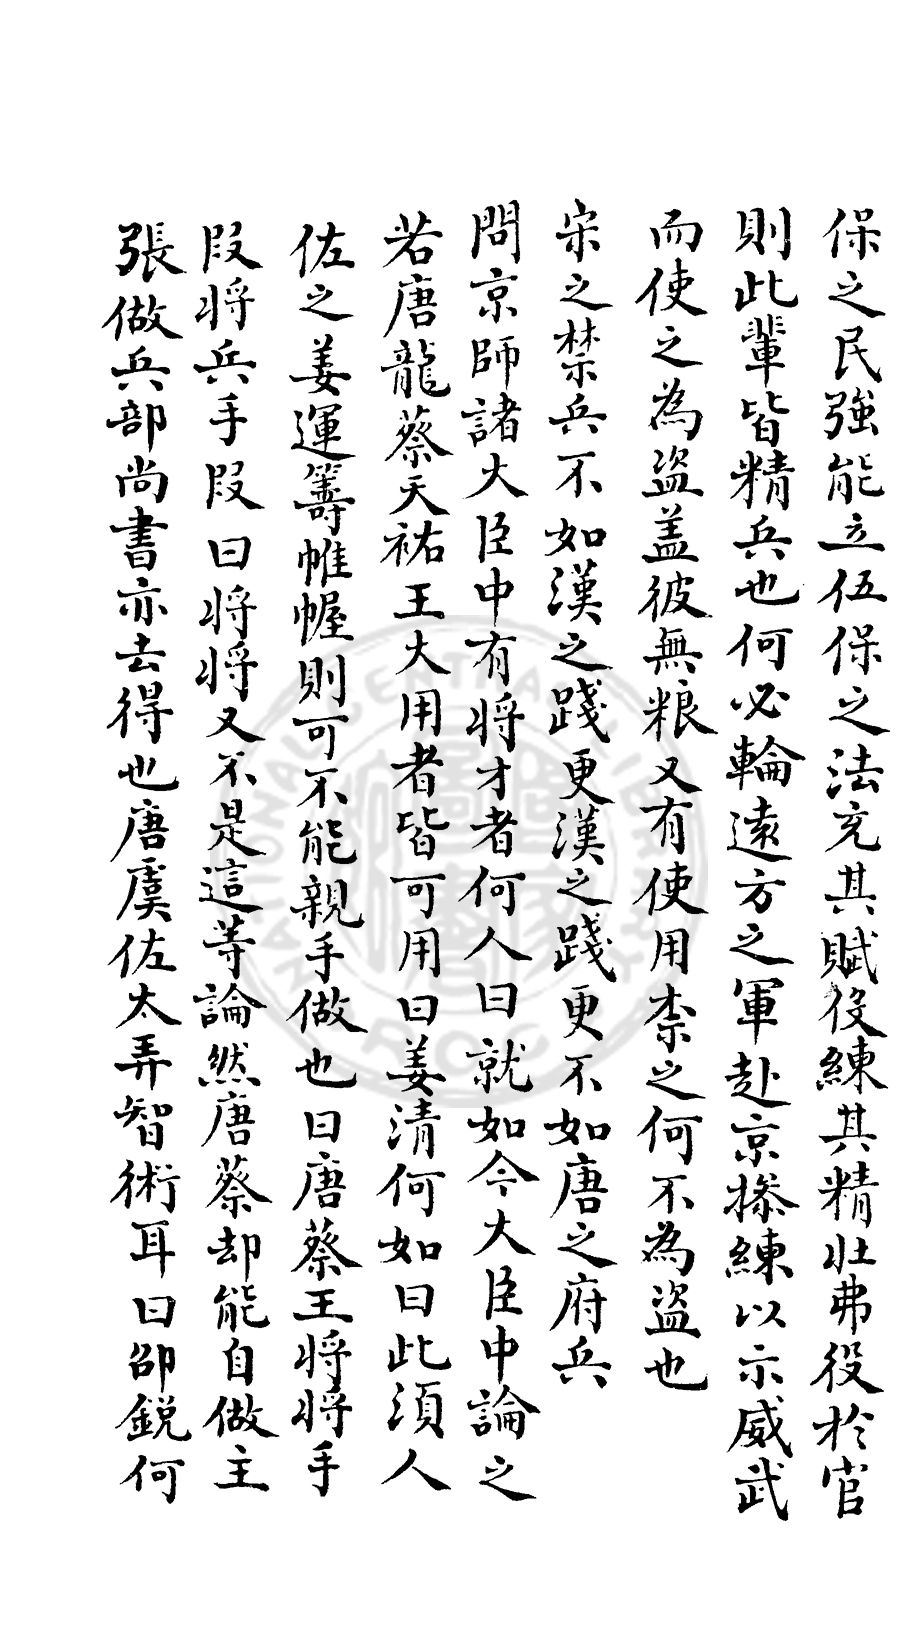 保之民強能立伍保之法充其賦役練其精壯弗役於官
則此輩皆精兵也何必輪遠方之軍赴京操練以示威武
而使之為盜盖彼無粮又有使用柰之何不為盜也
宋之禁兵不如漢之踐更漢之踐更不如唐之府兵
問京師諸大臣中有将才者何人曰就如今大臣中論之
若唐龍蔡天祐王大用者皆可用曰姜清何如曰此須人
佐之姜運籌帷幄則可不能親手做也曰唐蔡王将将手
段将兵手段曰将将又不是這等論然唐蔡却能自做主
張做兵部尚書亦去得也唐虞佐太弄智術耳曰邵鋭何